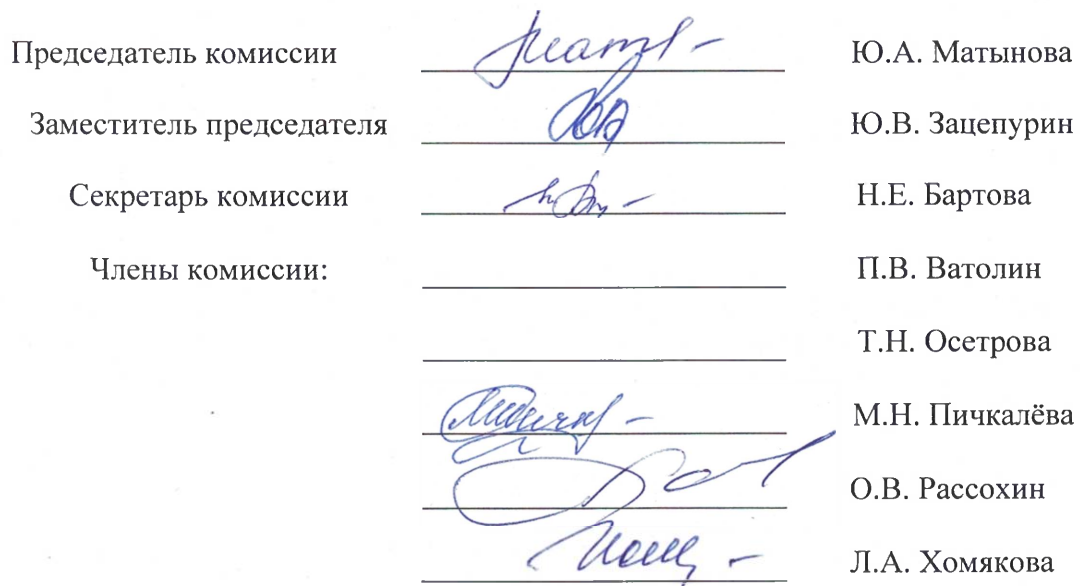 Председатель комиссии Ю.А. Матынова
Заместитель председателя Ю.В. Зацепурин
Секретарь комиссии Н.Е. Бартова
Члены комиссии: П.В. Ватолин
Т.Н. Осетрова
М.Н. Пичкалёва
О.В. Рассохин
Л.А. Хомякова